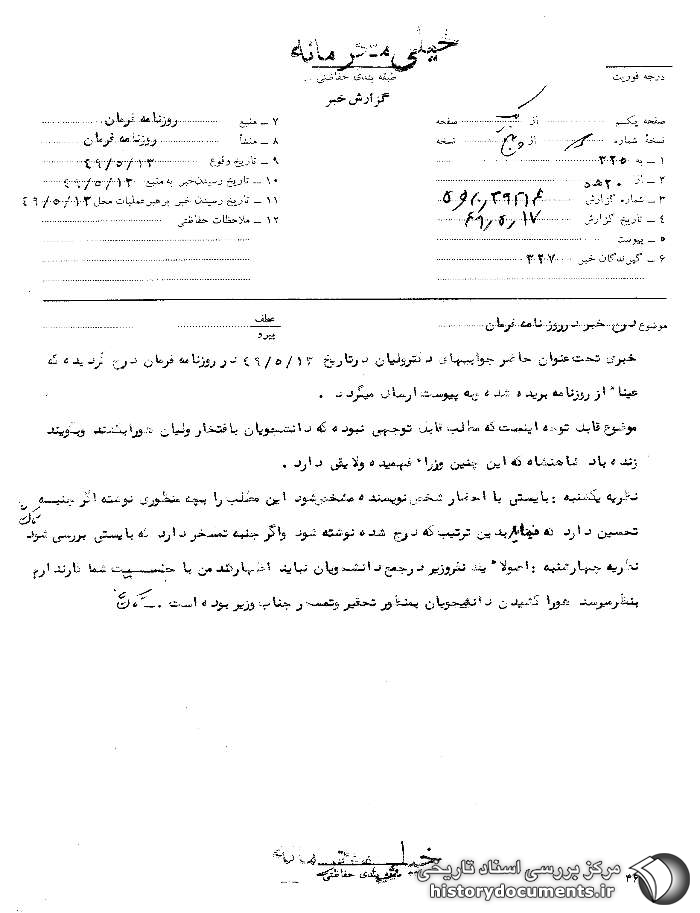 خیلی محرمانه
درجه فوریت
طبقه بندی حفاظتی
گزارش خبر
صفحه یکم از یک صفحه
نسخهٔ شماره از نسخه
۱ ـ به ۳۲۵
۲ ـ از ۲۰ه۵
۳ ـ شماره گزارش
۴ ـ تاریخ گزارش ۴۹٫۵٫۱۷
۵ ـ پیوست
۶ ـ گیرندگان خبر ۳۲۷
۷ ـ منبع روزنامه فرمان
۸ ـ منشأ روزنامه فرمان
۹ ـ تاریخ وقوع ۴۹/۵/۱۳
۱۰ ـ تاریخ رسیدن خبر به منبع ۴۹/۵/۱۳
۱۱ ـ تاریخ رسیدن خبر برهبر عملیات محل ۴۹/۵/۱۳
۱۲ ـ ملاحظات حفاظتی
موضوع درج خبر در روزنامه فرمان
عطف
پیرو
خبری تحت عنوان حاضر جوابیهای دکتر ولیان در تاریخ ۴۹/۵/۱۳ در روزنامه فرمان درج گردیده که
عینا" از روزنامه بریده شده و به پیوست ارسال میگردد .
موضوع قابل توجه اینست که مطلب قابل توجهی نبوده که دانشجویان بافتخار ولیان هورا بکشند و بگویند
زنده باد شاهنشاه که این چنین وزراء فهمیده و لایقی دارد .
نظریه یکشنبه : بایستی با احضار شخص نویسنده مشخص شود این مطلب را بچه منظوری نوشته اگر جنبه
تحسین دارد که بدین ترتیب که درج شده نوشته شود واگر جنبه تمسخر دارد که بایستی بررسی شود
نظریه چهارشنبه : اصولا" یک نفر وزیر در جمع دانشجویان نباید اظهار کند من با جنسیت شما کار ندارم
بنظر میرسد هورا کشیدن دانشجویان بمنظور تحقیر و تمسخر جناب وزیر بوده است .
خیلی محرمانه
طبقه بندی حفاظتی
مرکز بررسی اسناد تاریخی
historydocuments.ir